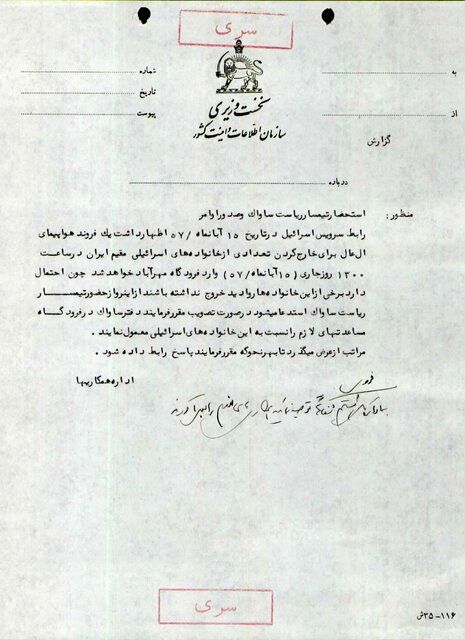 سری
نخست وزیری
سازمان اطلاعات و امنیت کشور
به
شماره
از
تاریخ
پیوست
گزارش
درباره
منظور : استحضار تیمسار ریاست ساواك و صدور اوامر
رابط سرویس اسرائیل در تاریخ ۱۵ آبانماه ۵۷/ اظهار داشت یك فروند هواپیمای
ال عال برای خارج کردن تعدادی از خانواده های اسرائیلی مقیم ایران در ساعت
۱۳۰۰ روز جاری (۱۵ آبانماه ۵۷/) وارد فرودگاه مهرآباد خواهد شد چون احتمال
دارد برخی از این خانواده ها روادید خروج نداشته باشند از اینرو از حضور تیمسار
ریاست ساواك استدعا میشود در صورت تصویب مقرر فرمایند دفتر ساواك در فرودگاه
مساعدتهای لازم را نسبت به این خانواده های اسرائیلی معمول نمایند .
مراتب از عرض میگذرد تا بهر نحو که مقرر فرمایند پاسخ رابط داده شود .
اداره همکاریها
سری
۱۱۶-۳۵ش